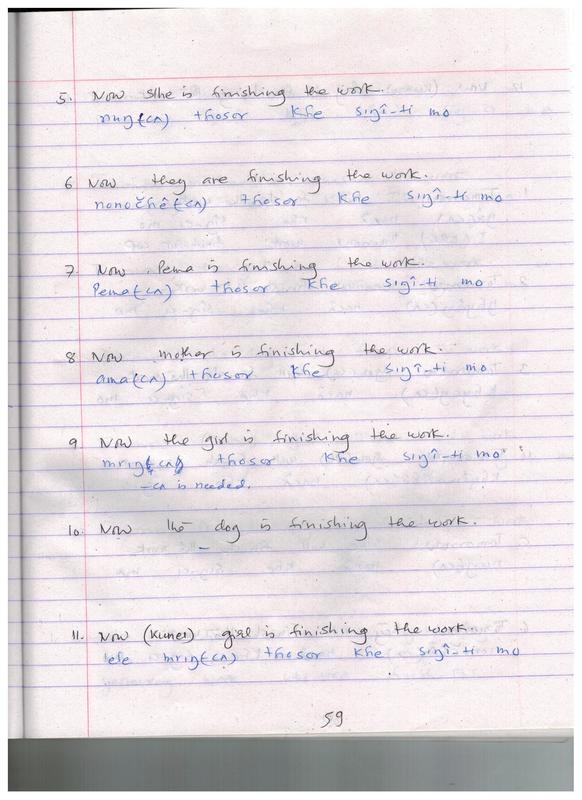 5. Now s/he is finishing the work.
nuŋɛ(cʌ) thosor khe siŋî-ti mo
6 Now they are finishing the work.
nonočhê(cʌ) thosor khe siŋî-ti mo
7. Now Pema is finishing the work.
Pema(cʌ) thosor khe siŋî-ti mo
8 Now mother is finishing the work.
ama(cʌ) thosor khe siŋî-ti mo
9 Now the girl is finishing the work.
mriŋɛ cʌ thosor khe siŋî-ti mo
-cʌ is needed.
10. Now the dog is finishing the work.
11. Now (Kunes) girl is finishing the work.
mriŋɛ(cʌ) thosor khe siŋî-ti mo
59